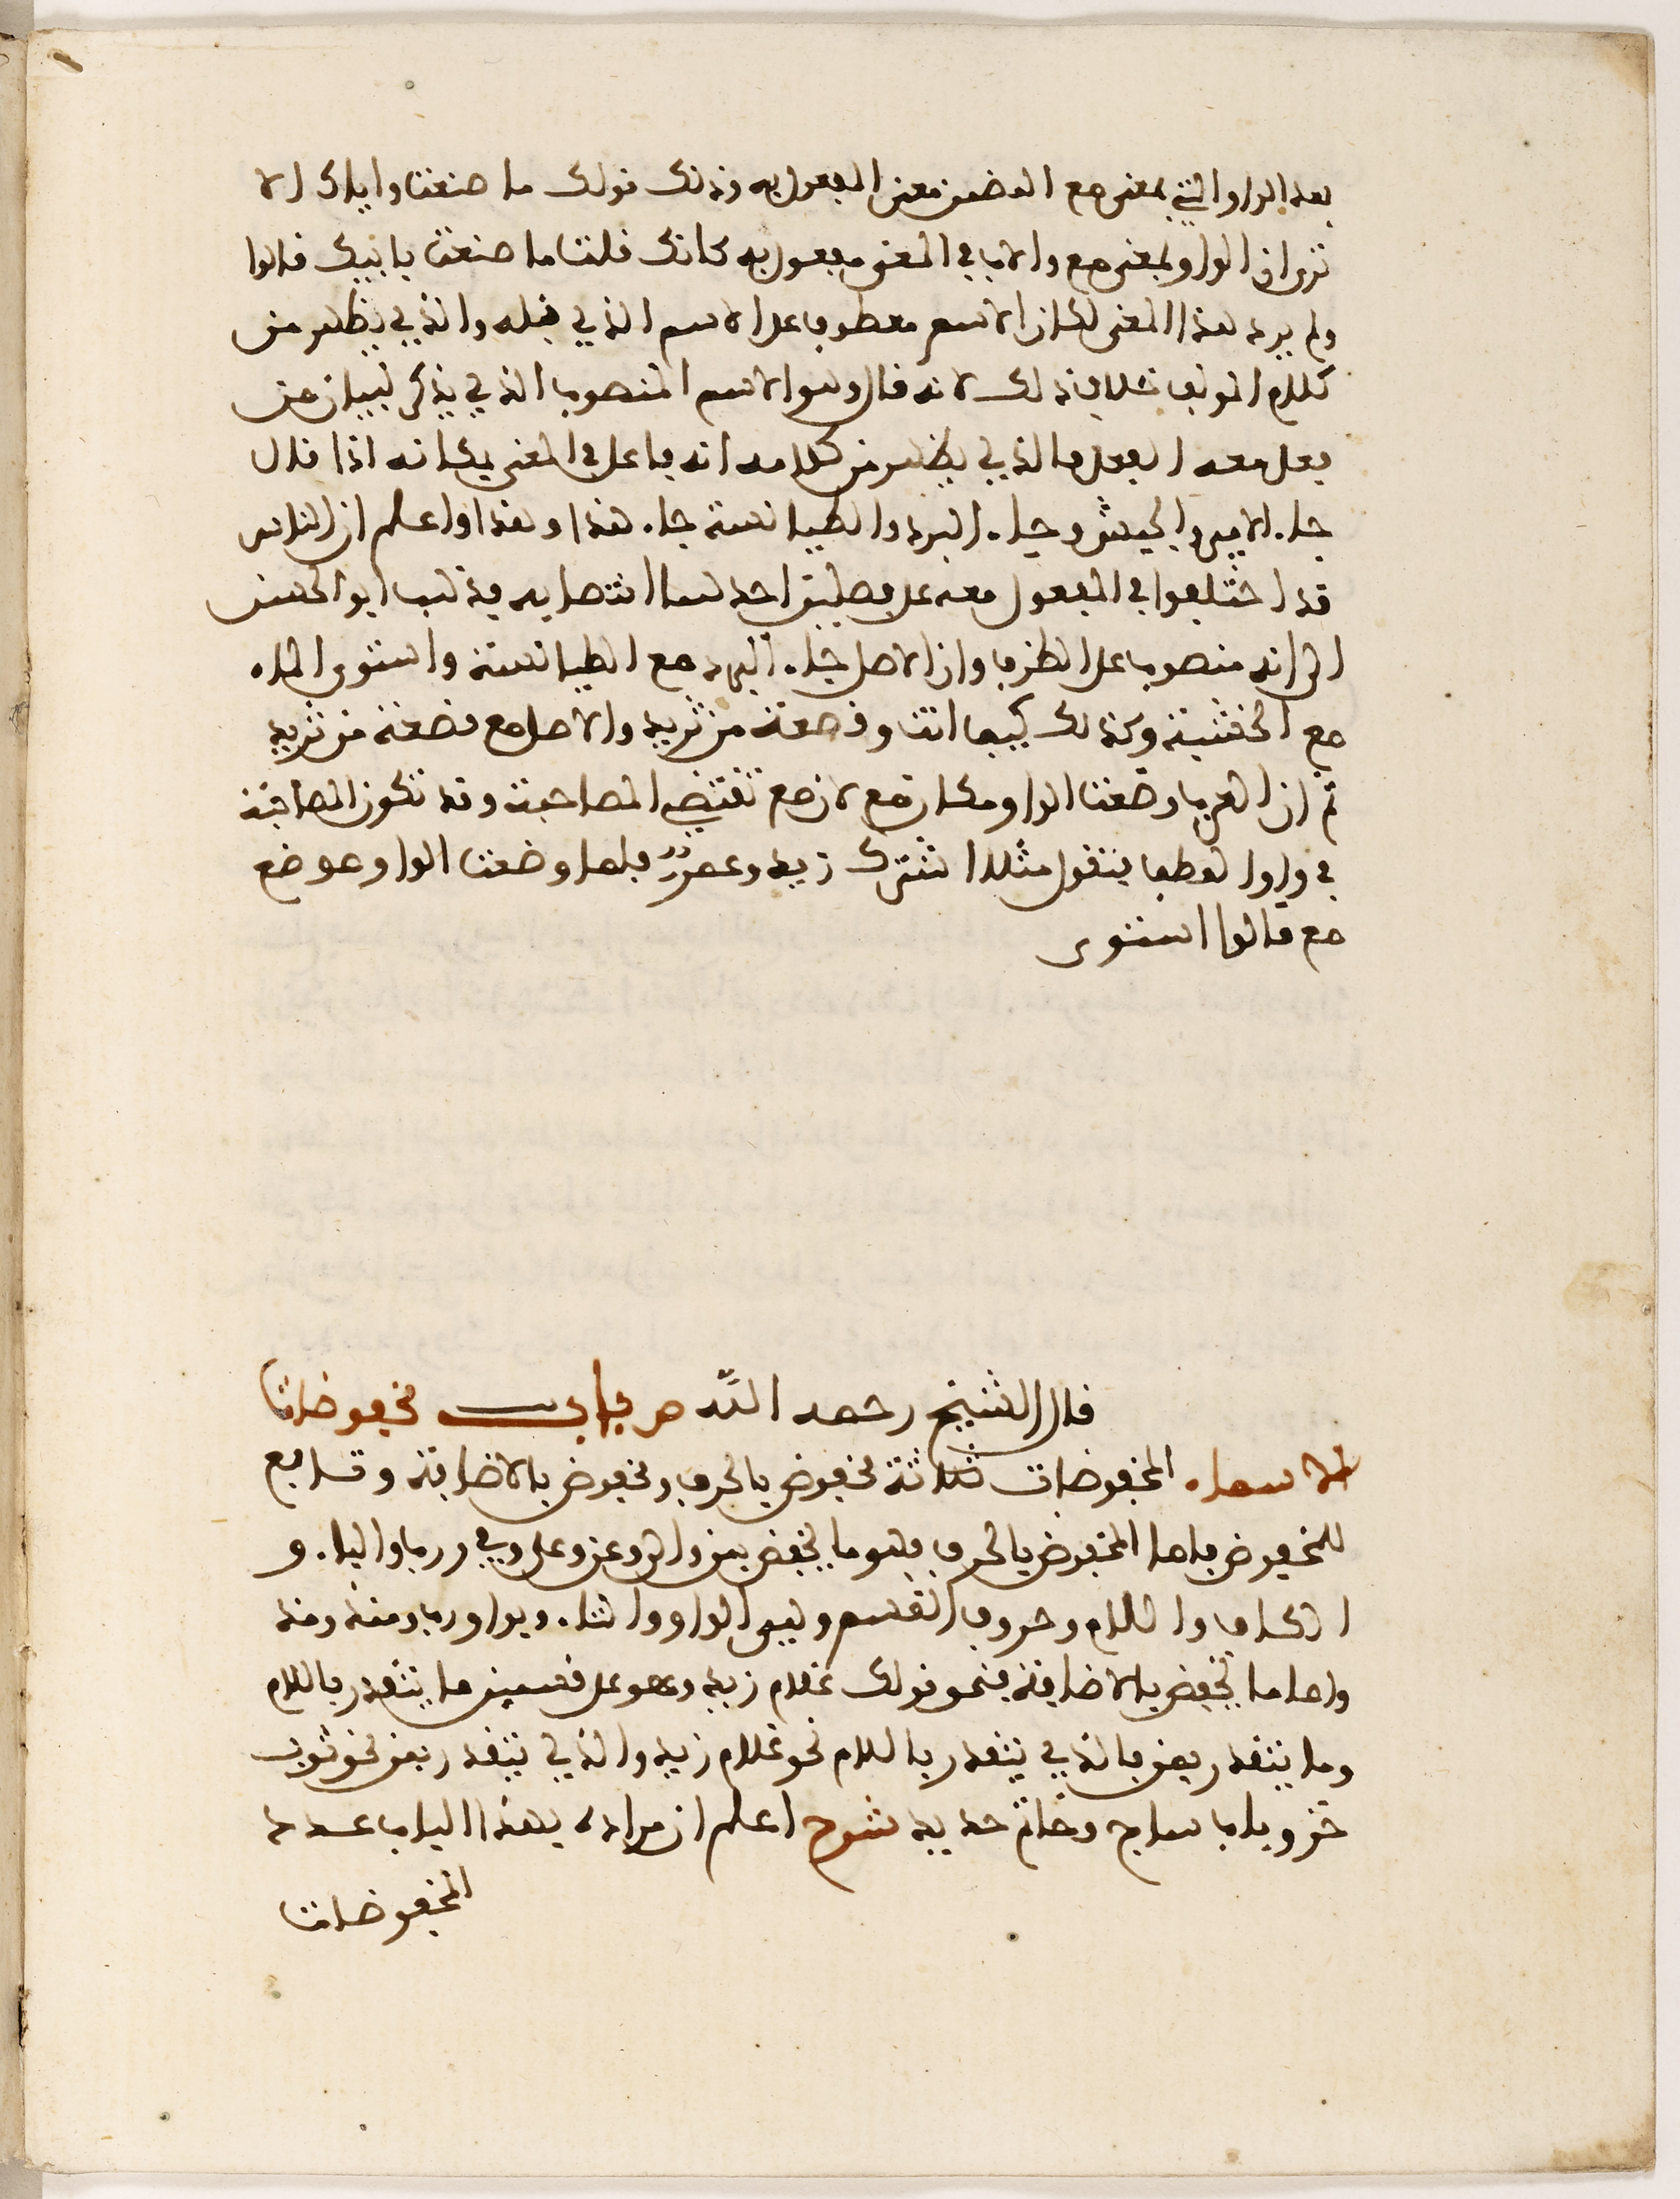 بعد الواو التي بمعنى مع المضمن معنى المفعول به وذلك قولك ما صنعت واباك الا
ترى ان الواو بمعنى مع والاب في المعنى مفعول به كانك قلت ما صنعت بابيك قالوا
ولم يرد هذا المعنى لكان الاسم معطوفا على الاسم الذي قبله والذي يظهر من
كلام المؤلف خلاف ذلك لانه قال وهو الاسم المنصوب الذي يذكر لبيان من
فعل معه الفعل فالذي يظهر من كلامه انه فاعل في المعنى فكانه اذا قال
جاء الامير والجيش وجاء البرد والطيالسة جاء هذا وهذا واعلم ان الناس
قد اختلفوا في المفعول معه على فصلين احدهما انتصابه فذهب ابو الحسن
الى انه منصوب على الظرف وان الاصل جاء البرد مع الطيالسة واستوى الماء
مع الخشبة وكذلك كيف انت وقصعة من ثريد والاصل مع قصعة من ثريد
ثم ان العرب وضعت الواو مكان مع لان مع تقتضي المصاحبة وقد تكون المصاحبة
في واو العطف فتقول مثلا اشترك زيد وعمرو فلما وضعت الواو موضع
مع قالوا استوى
قال الشيخ رحمه الله ص باب مخفوضات
الاسماء المخفوضات ثلاثة مخفوض بالحرف ومخفوض بالاضافة وتابع
للمخفوض فاما المخفوض بالحرف فهو ما يخفض بمن والى وعن وعلى وفي ورب والباء و
الكاف واللام وحروف القسم وهي الواو والتاء وبواو رب ومذ ومنذ
واما ما يخفض بالاضافة فنحو قولك غلام زيد وهو على قسمين ما يتقدر باللام
وما يتقدر بمن فالذي يتقدر باللام نحو غلام زيد والذي يتقدر بمن نحو ثوب
خز وباب ساج وخاتم حديد شرح اعلم ان مراده بهذا الباب عدد
المخفوضات